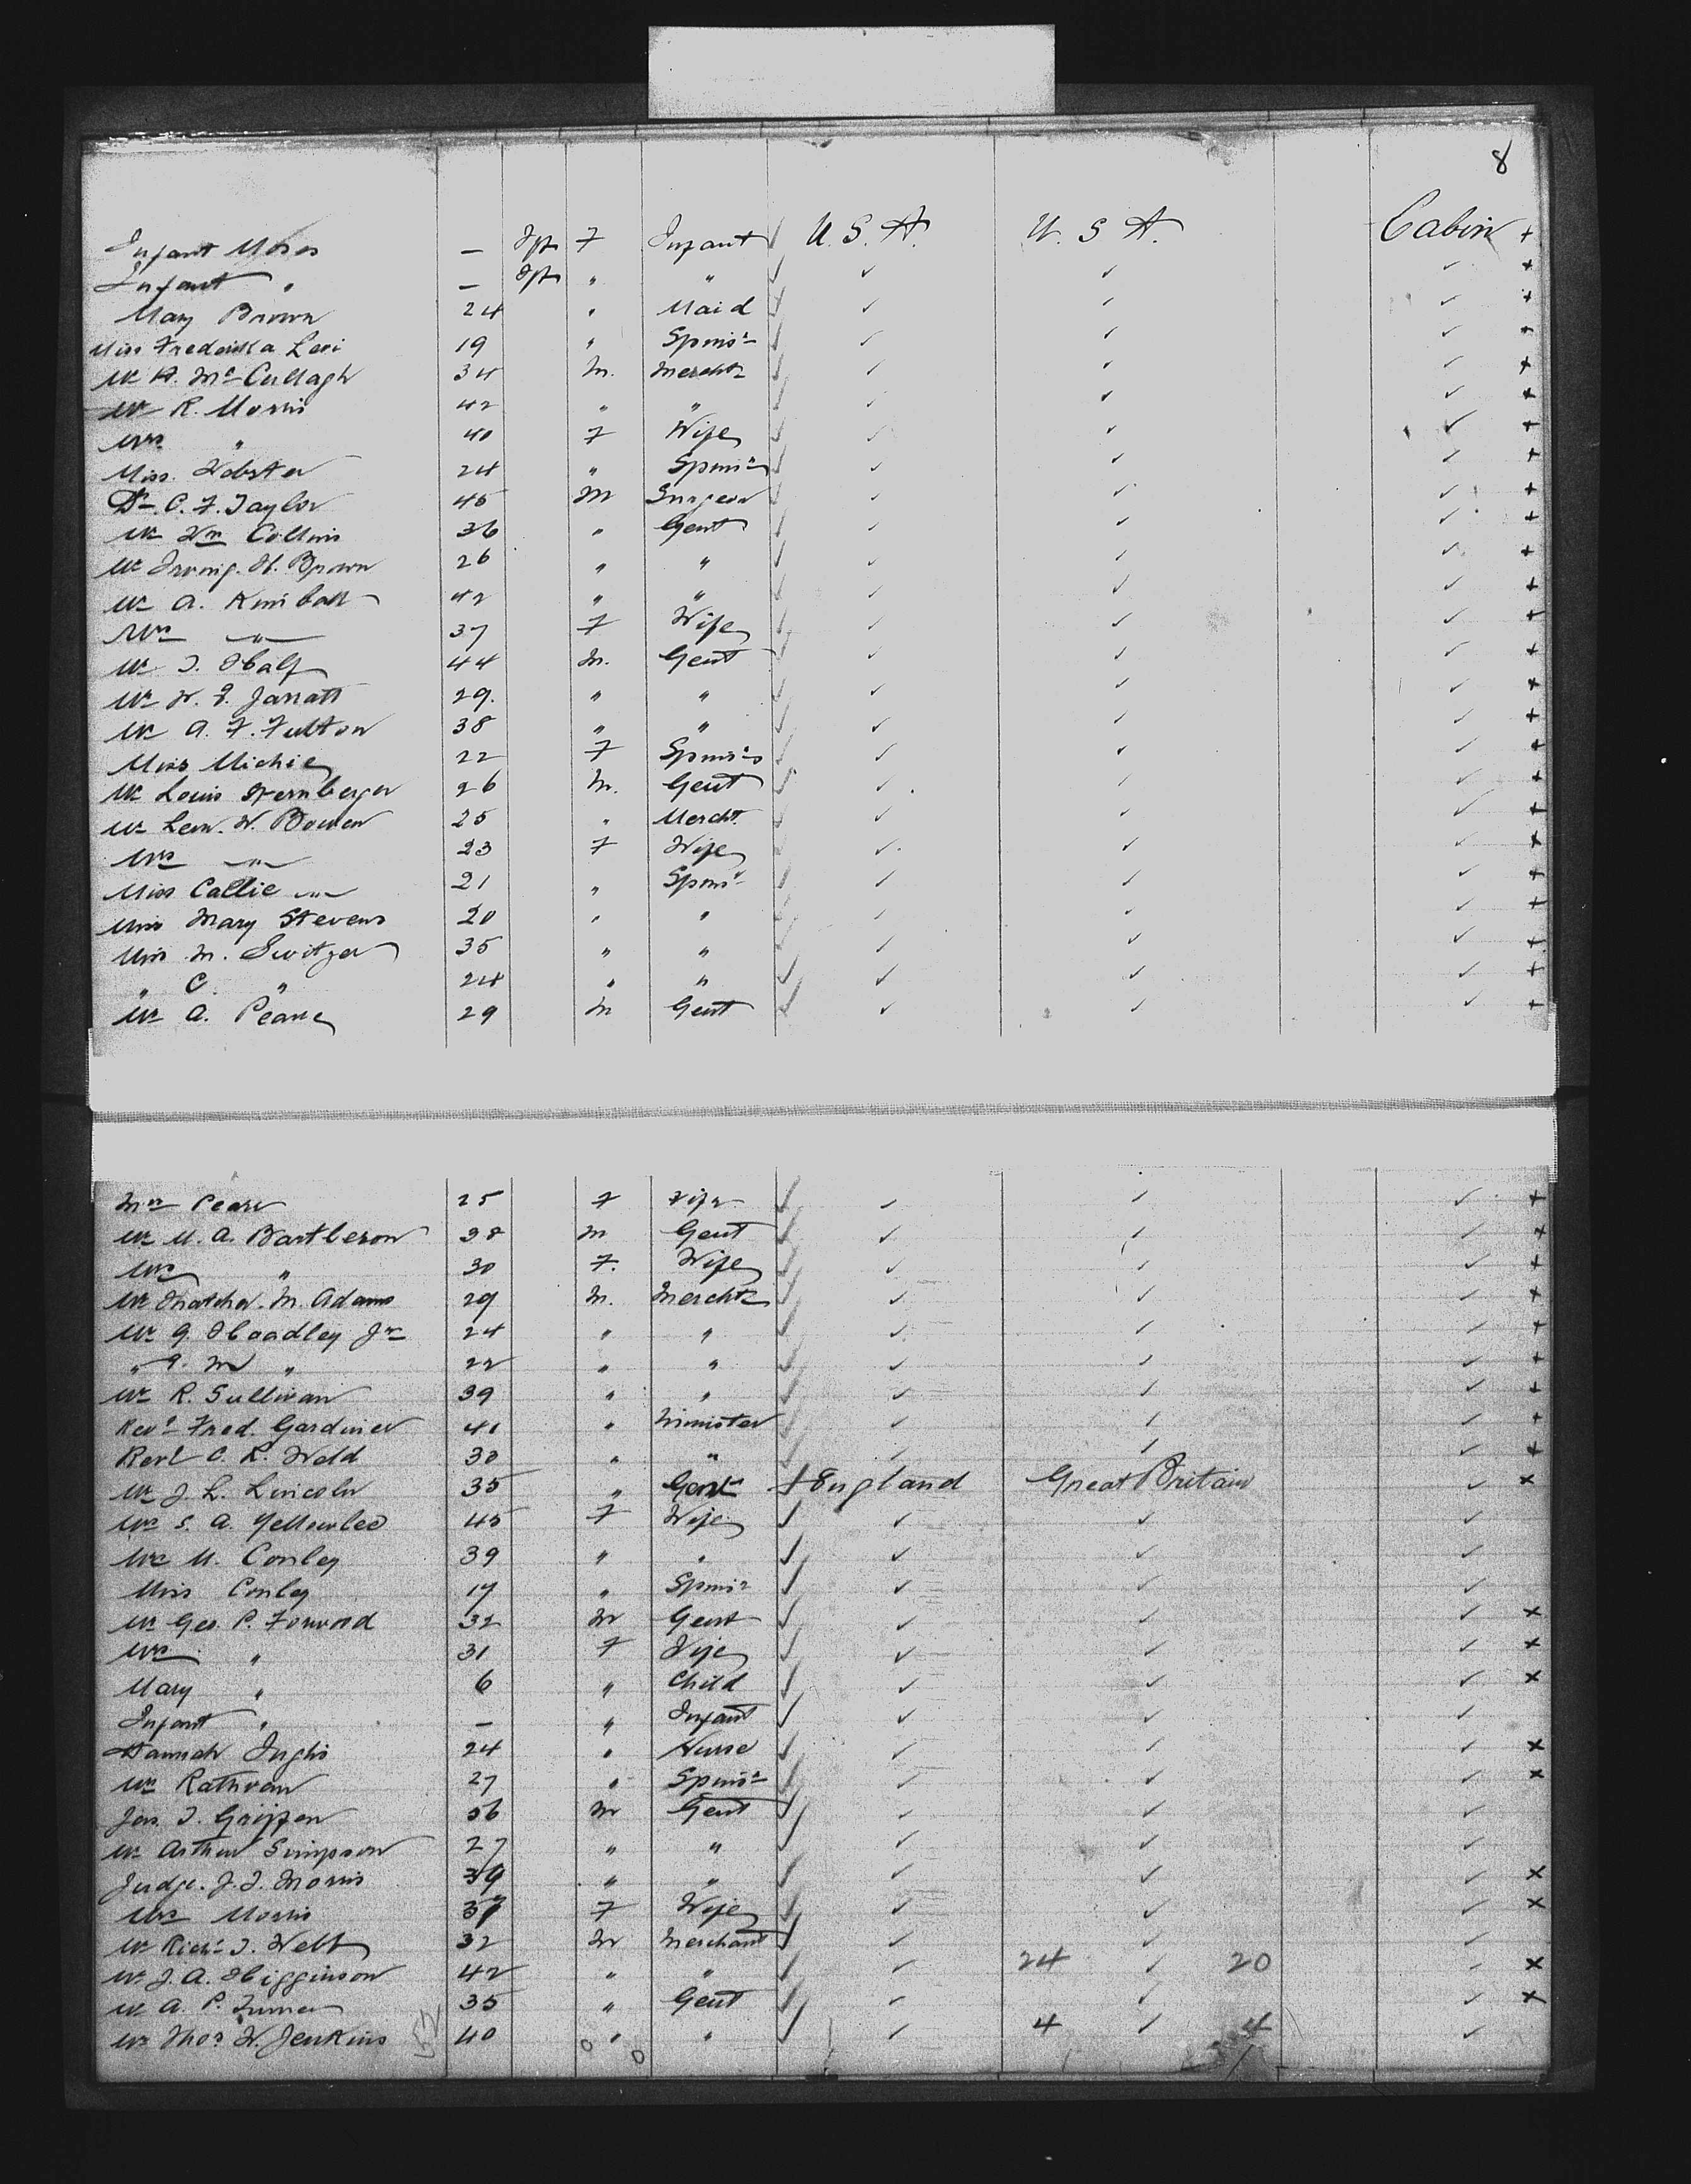 8
Infant Moses — F Infant U. S. A. U. S. A. Cabin +
Infant " — " " ✓ ✓ ✓ ✓ +
Mary Brown 24 " Maid ✓ ✓ ✓ ✓ +
Miss Fredericka Levi 19 " Spins ✓ ✓ ✓ ✓
Mr A. McCullagh 34 M. Mercht ✓ ✓ ✓ ✓ +
Mr R. Morris 42 " " ✓ ✓ ✓ ✓ +
Mrs " 40 F Wife ✓ ✓ ✓ ✓ +
Miss. Webster 24 " Spins ✓ ✓ ✓ ✓ +
Dr. C. F. Taylor 45 M Surgeon ✓ ✓ ✓ ✓ +
Mr Wm Collins 36 " Gent ✓ ✓ ✓ ✓ +
Mr Irving. H. Brown 26 " " ✓ ✓ ✓ ✓ +
Mr A. Kimball 42 " " ✓ ✓ ✓ ✓ +
Mrs —"— 37 F Wife ✓ ✓ ✓ ✓ +
Mr Half 44 M. Gent ✓ ✓ ✓ ✓ +
Mr Jarratt 29. " " ✓ ✓ ✓ ✓ +
Mr A. F. Fulton 38 " " ✓ ✓ ✓ ✓ +
Miss Michie 22 F Spins ✓ ✓ ✓ ✓ +
Mr Louis Sternberger 26 M. Gent ✓ ✓ ✓ ✓ +
Mr Leon. W. Bowen 25 " Mercht. ✓ ✓ ✓ ✓ +
Mrs —"— 23 F Wife ✓ ✓ ✓ ✓ +
Miss Callie —"— 21 " Spins ✓ ✓ ✓ ✓ +
Miss Mary Stevens 20 " " ✓ ✓ ✓ ✓ +
Miss M. Switzer 35 " " ✓ ✓ ✓ ✓ +
" C. " 24 " " ✓ ✓ ✓ ✓ +
Mr A. Pearce 29 M Gent ✓ ✓ ✓ ✓ +
Mrs Pearce 25 F Wife ✓ ✓ ✓ ✓ +
Mr M. A. Bartleson 38 M Gent ✓ ✓ ✓ ✓ +
Mrs " 30 F. Wife ✓ ✓ ✓ ✓ +
Mr Thatcher. M. Adams 29 M. Mercht ✓ ✓ ✓ ✓ +
Mr G. Hoadley Jr 24 " " ✓ ✓ ✓ ✓ +
" G. M " 22 " " ✓ ✓ ✓ ✓ +
Mr R. Sullivan 39 " " ✓ ✓ ✓ ✓ +
Revd Fred. Gardiner 40 " Minister ✓ ✓ ✓ ✓ +
Revd C. R. Weld 30 " " ✓ ✓ ✓ ✓ +
Mr J. L. Lincoln 35 " Gent + England Great Britain ✓ ×
Mrs S. A. Yellowlee 45 F Wife ✓ ✓ ✓ ✓
Mrs M. Conley 39 " " ✓ ✓ ✓ ✓
Miss Conley 17 " Spins ✓ ✓ ✓ ✓
Mr Geo. P. Forwood 32 M Gent ✓ ✓ ✓ ✓ ×
Mrs " 31 F Wife ✓ ✓ ✓ ✓ ×
Mary " 6 " Child ✓ ✓ ✓ ✓ ×
Infant " — " Infant ✓ ✓ ✓ ✓
Hannah Inglis 24 " Nurse ✓ ✓ ✓ ✓ ×
Rathvon 27 " Spins ✓ ✓ ✓ ✓ ×
Jas. 56 M Gent ✓ ✓ ✓ ✓
Mr Arthur Simpson 27 " " ✓ ✓ ✓ ✓
Judge. Morris 39 " " ✓ ✓ ✓ ✓ ×
Mrs Morris 37 F Wife ✓ ✓ ✓ ✓ ×
Mr Richd 32 M Merchant ✓ ✓ ✓ ✓
Mr J. A. Higginson 42 " " ✓ ✓ 24 ✓ 20 ✓ ×
Mr A. P. Turner 35 " Gent ✓ ✓ ✓ ✓ ×
Mr Thos W. Jenkins 40 " " ✓ ✓ 4 ✓ 4 ✓
0 0